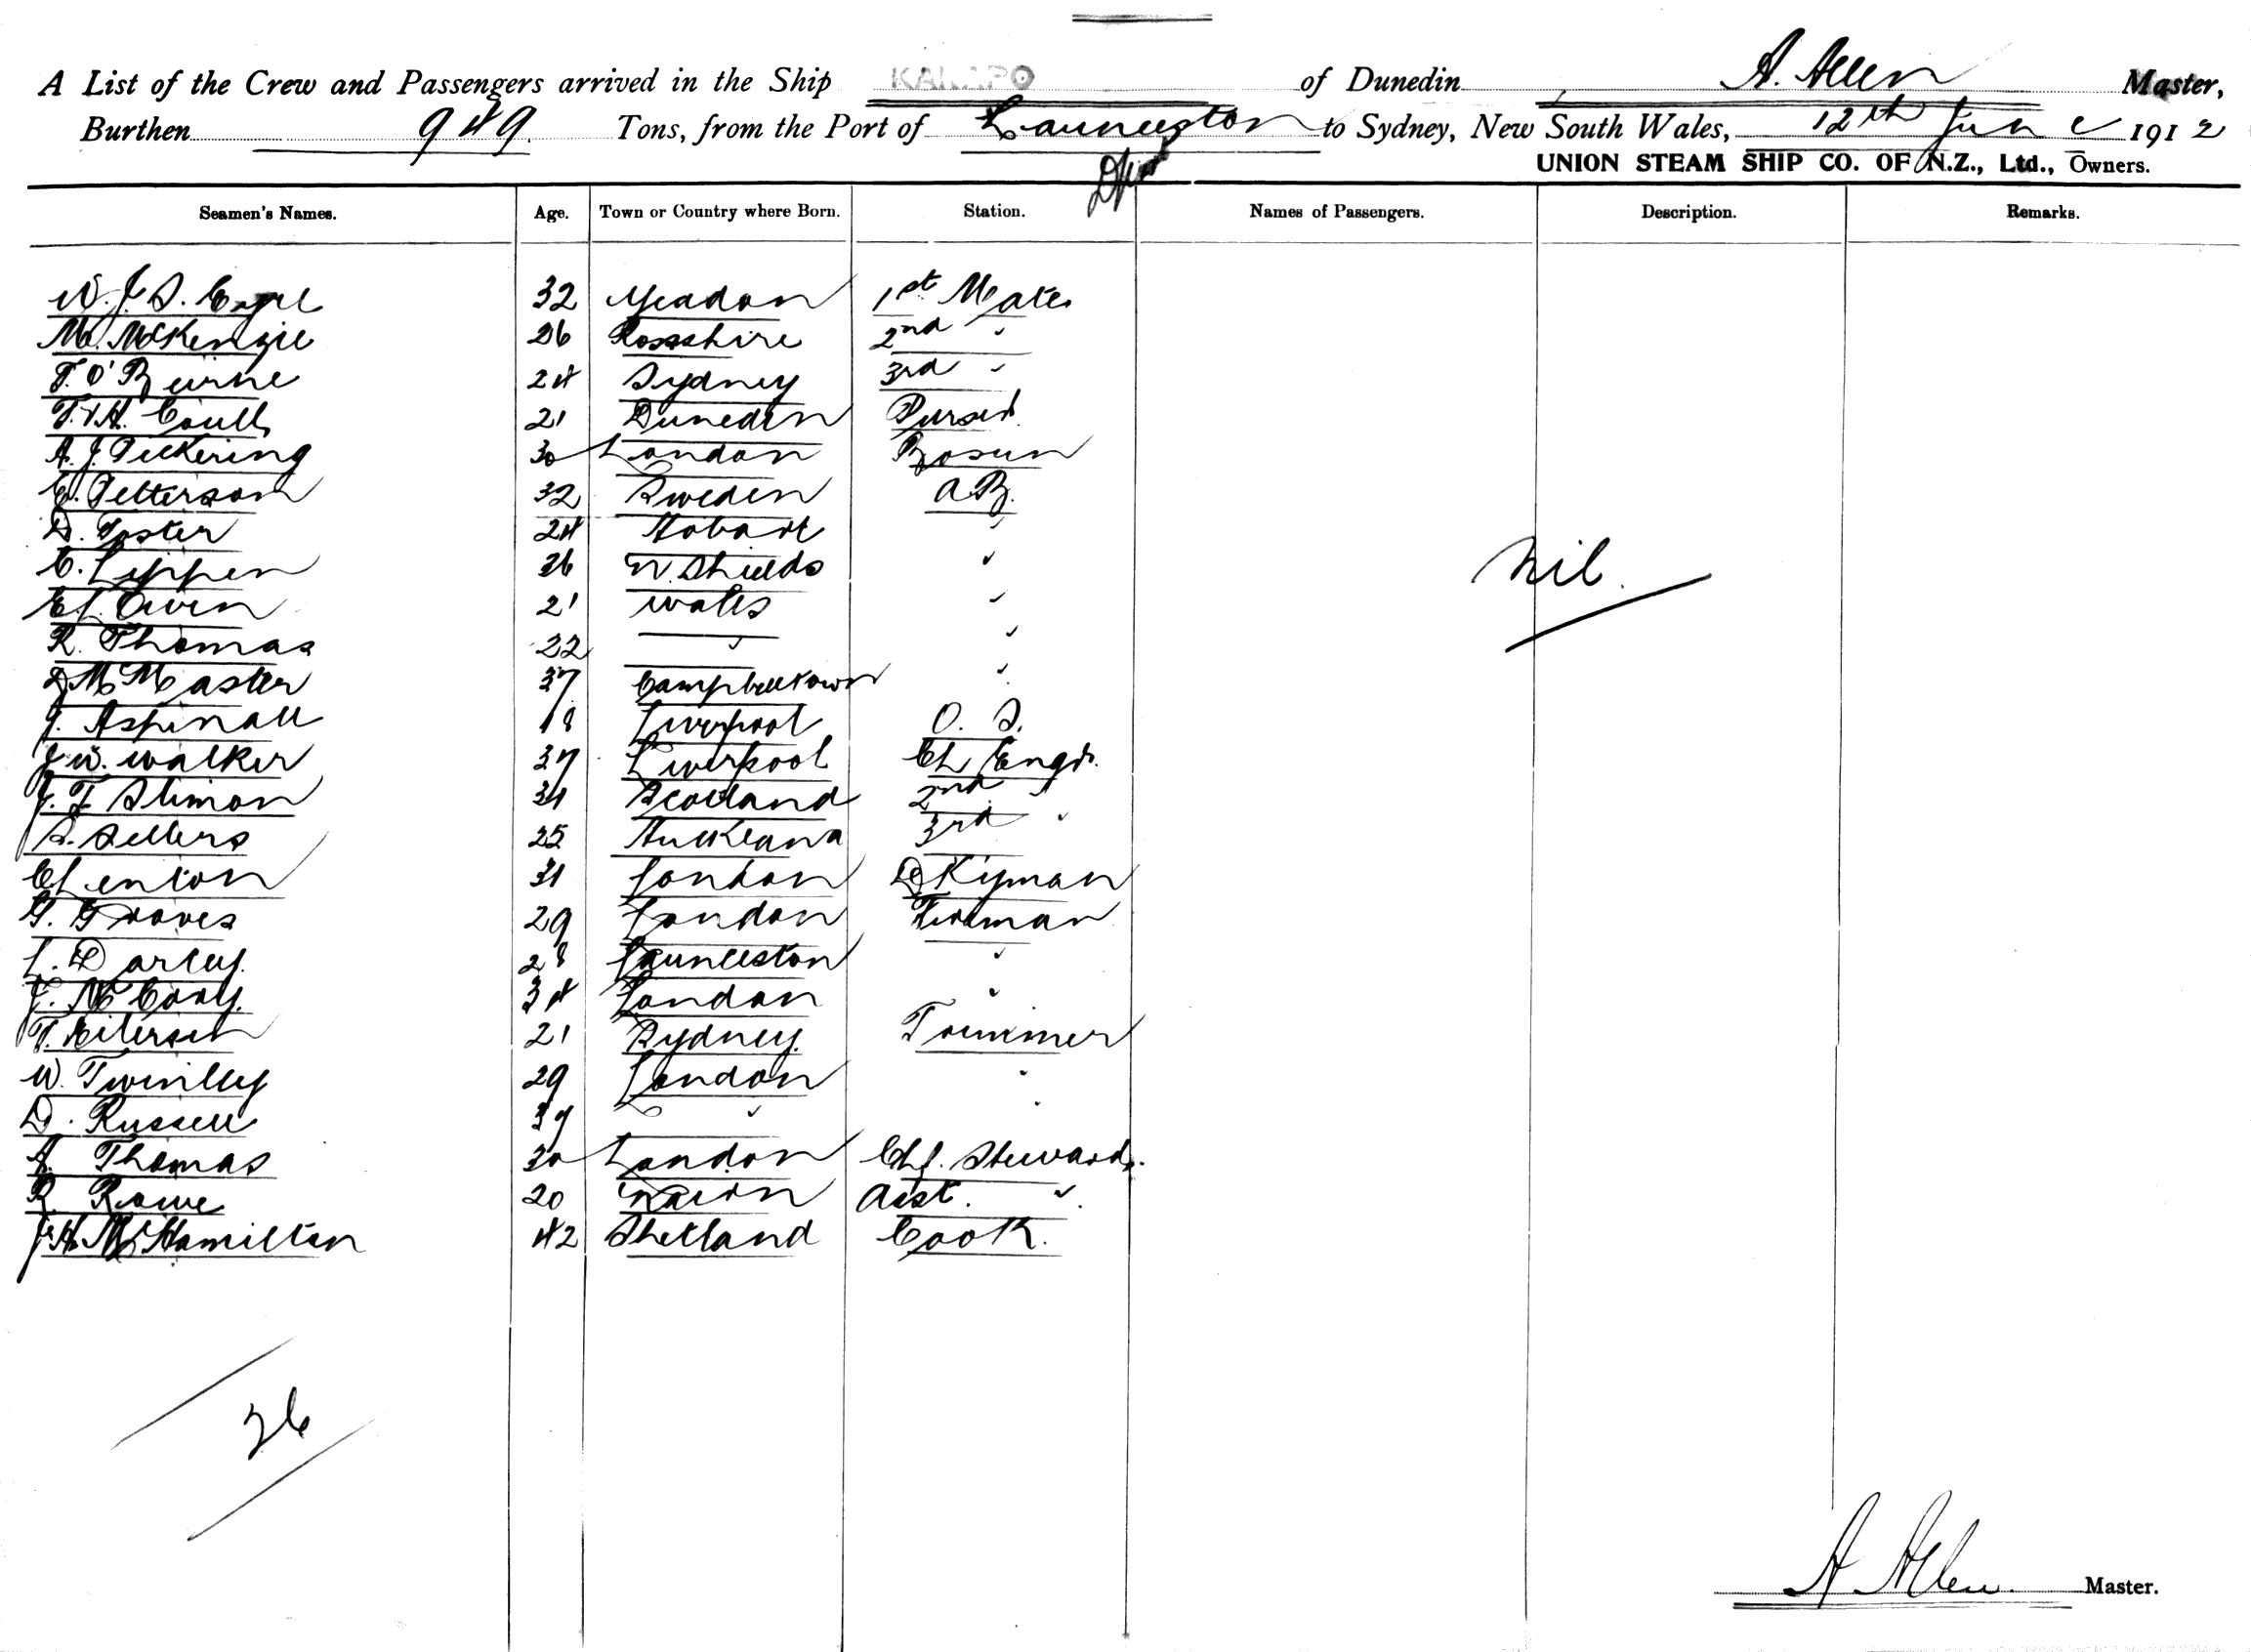 A List of the Crew and Passengers arrived in the Ship of Dunedin A. Allen Master,
Burthen 949 Tons, from the Port of Launceston to Sydney, New South Wales, 12th June 1912
UNION STEAM SHIP CO. OF N.Z., Ltd., Owners.
Seamen's Names. Age. Town or Country where Born. Station. Names of Passengers. Description. Remarks.
W. J. S. 32 1st Mate
M. McKenzie 26 Rossshire 2nd "
T. O'Byrne 24 Sydney 3rd "
T. H. Coull 21 Dunedin Purser
A. J. Pickering 30 London Bosun
C. Petterson 32 Sweden A.B.
D. Foster 24 Hobart "
C. Lippen 36 N. Shields "
E. L. Owen 21 Wales "
R. Thomas 22 " "
D McMaster 37 Campbelltown "
J. Aspinall 18 Liverpool O. S.
J. W. Walker 37 Liverpool Ch Engr.
J. F. Slimon 31 Scotland 2nd "
S. Sellers 25 Auckland 3rd "
C Lenton 31 London Dkyman
G. Groves 29 London Fireman
L. Darley. 28 Launceston "
J. McCory. 34 London "
T. 21 Sydney. Trimmer
W. Twinlley 29 London "
D. Russell 39 " "
A. Thomas 30 London Chf. Steward.
R. Rowe 20 Asst. "
J. H. McHamilton 42 Shetland Cook.
Nil.
26
A Allen. Master.